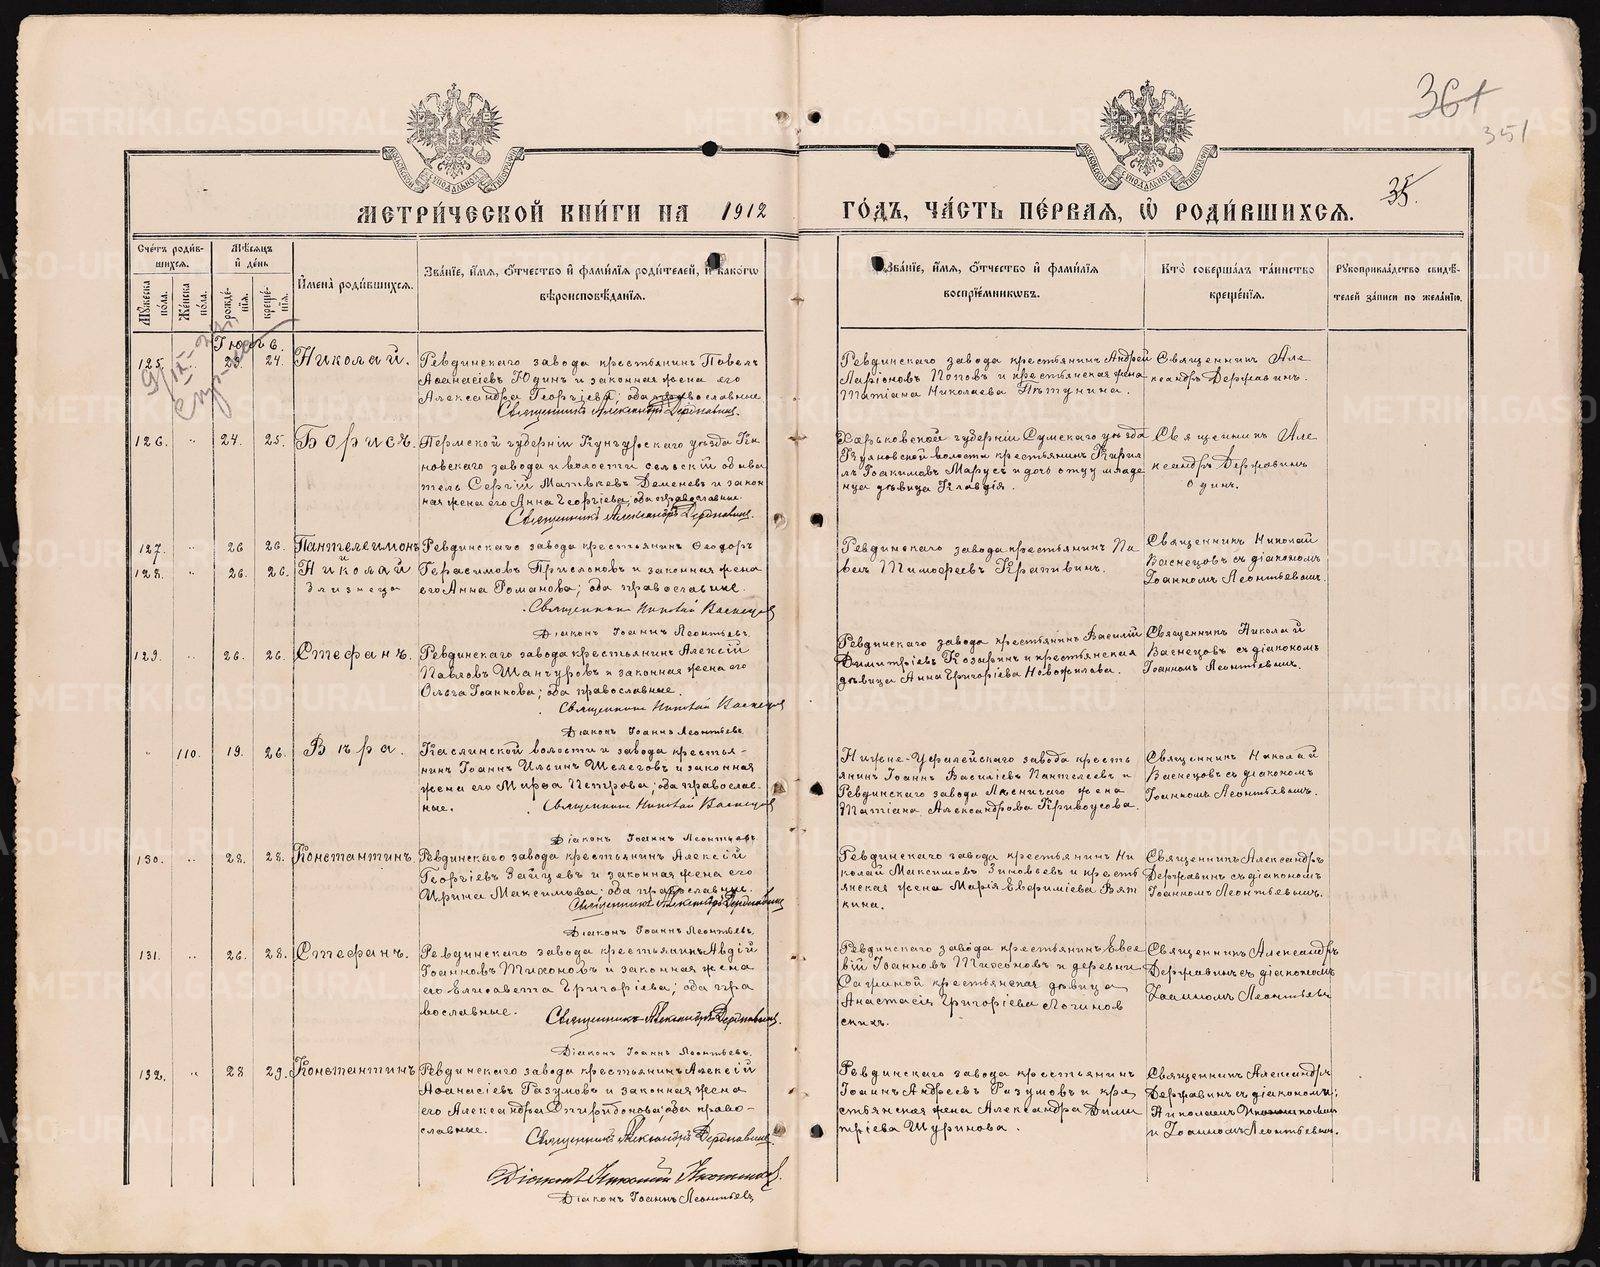 36+
351
35.
МЕТРИ́ЧЕСКОЙ КНИ́ГИ НА 1912 ГО́ДЪ, ЧА́СТЬ ПЕ́РВАЯ, Ѽ РОДИ́ВШИХСЯ.
Сче́тъ роди́вшихся.
Мѣ́сяцъ и҆ де́нь
И҆мена̀ роди́вшихся.
Зва́нїе, и҆́мя, ѻ҆́тчество и҆ фами́лїя роди́телей, и҆ како́гѡ вѣроисповѣ́данїя.
Зва́нїе, и҆́мя, ѻ҆́тчество и҆ фами́лїя воспрїе́мникѡвъ.
Кто̀ соверша́лъ та́инство креще́нїя.
Рꙋкоприкла́дство свидѣ́телей за́писи по жела́нїю.
Мꙋ́жеска по́ла.
Же́нска по́ла.
рожде́нїя.
креще́нїя.
125.
24.
Николай.
Ревдинскаго завода крестьянинъ Павелъ
Аѳанасіевъ Юдинъ и законная жена его
Александра Георгіева; оба православные
Священникъ Александръ Державинъ.
Ревдинскаго завода крестьянинъ Андрей
Ларіоновъ Поповъ и крестьянская жена
Татіана Николаева Пѣтунина.
Священникъ Але
ксандръ Державинъ.
126. " 24. 25.
Борисъ.
Пермской губерніи Кунгурскаго уѣзда Ки
новскаго завода и волости сельскій обыва
тель Сергій Матвѣевъ Деменевъ и закон
ная жена его Анна Георгіева; оба православные.
Священникъ Александръ Державинъ.
Харьковской губерніи Сумскаго уѣзда
волости крестьянинъ Кирил
лъ Іоакимовъ Марусъ и дочь отца младе
нца дѣвица Клавдія.
Священникъ Але
ксандръ Державинъ
одинъ.
127. " 26 26.
128. " 26. 26.
Пантелеимонъ
и
Николай
близнецы
Ревдинскаго завода крестьянинъ Ѳеодоръ
Герасимовъ и законная жена
его Анна Романова; оба православные.
Священникъ Николай Васнецов
Діаконъ Іоаннъ Леонтьевъ.
Ревдинскаго завода крестьянинъ Па
велъ Тимоѳеевъ Крапивинъ.
Священникъ Николай
Васнецовъ съ діакономъ
Іоанномъ Леонтьевымъ.
129. " 26. 26.
Стефанъ.
Ревдинскаго завода крестьянинъ Алексій
Павловъ Шангуровъ и законная жена его
Ольга Іоаннова; оба православные.
Священникъ Николай Васнецов
Діаконъ Іоаннъ Леонтьевъ.
Ревдинскаго завода крестьянинъ Василій
Димитріевъ Козыринъ и крестьянская
дѣвица Анна Григоріева Новожилова.
Священникъ Николай
Васнецовъ съ діакономъ
Іоанномъ Леонтьевымъ.
" 110. 19. 26.
Вѣра.
Каслинской волости и завода крестья-
нинъ Іоаннъ Ильинъ Шелеговъ и законная
жена его Марѳа Петрова; оба православ-
ные.
Священникъ Николай Васнецов
Діаконъ Іоаннъ Леонтьевъ.
Нижне-Уфалейскаго завода кресть
янинъ Іоаннъ Василіевъ Пантелеевъ и
Ревдинскаго завода Лѣсничаго жена
Татіана Александрова Кривоусова.
Священникъ Николай
Васнецовъ съ діакономъ
Іоанномъ Леонтьевымъ.
130. " 28. 28.
Константинъ
Ревдинскаго завода крестьянинъ Алексій
Георгіевъ Зайцевъ и законная жена его
Ирина Максимова; оба православные.
Священникъ Александръ Державинъ
Діаконъ Іоаннъ Леонтьевъ.
Ревдинскаго завода крестьянинъ Ни
колай Максимовъ Зиновьевъ и кресть
янская жена Марія Евѳиміева Вят
кина.
Священникъ Александръ
Державинъ съ діакономъ
Іоанномъ Леонтьевымъ.
131. " 26. 28.
Стефанъ.
Ревдинскаго завода крестьянинъ Авдій
Іоанновъ Тихоновъ и законная жена
его Елисавета Григоріева; оба пра
вославные.
Священникъ Александръ Державинъ.
Діаконъ Іоаннъ Леонтьевъ.
Ревдинскаго завода крестьянинъ Евсе
вій Іоанновъ Тихоновъ и деревни
крестьянская дѣвица
Анастасія Григоріева Логинов
скихъ.
Священникъ Александръ
Державинъ съ діакономъ
Іоанномъ Леонтьев
132. " 28 29.
Константинъ
Ревдинскаго завода крестьянинъ Алексій
Аѳанасіевъ Разумовъ и законная жена
его Александра Спиридонова; оба право-
славные.
Священникъ Александръ Державинъ.
Діаконъ Николай
Діаконъ Іоаннъ Леонтьевъ
Ревдинскаго завода крестьянинъ
Іоаннъ Андреевъ Разумовъ и кре
стьянская жена Александра Дими
тріева Шуринова.
Священникъ Александръ
Державинъ съ діакономъ;
Николаемъ
и Іоанномъ Леонтьевым.